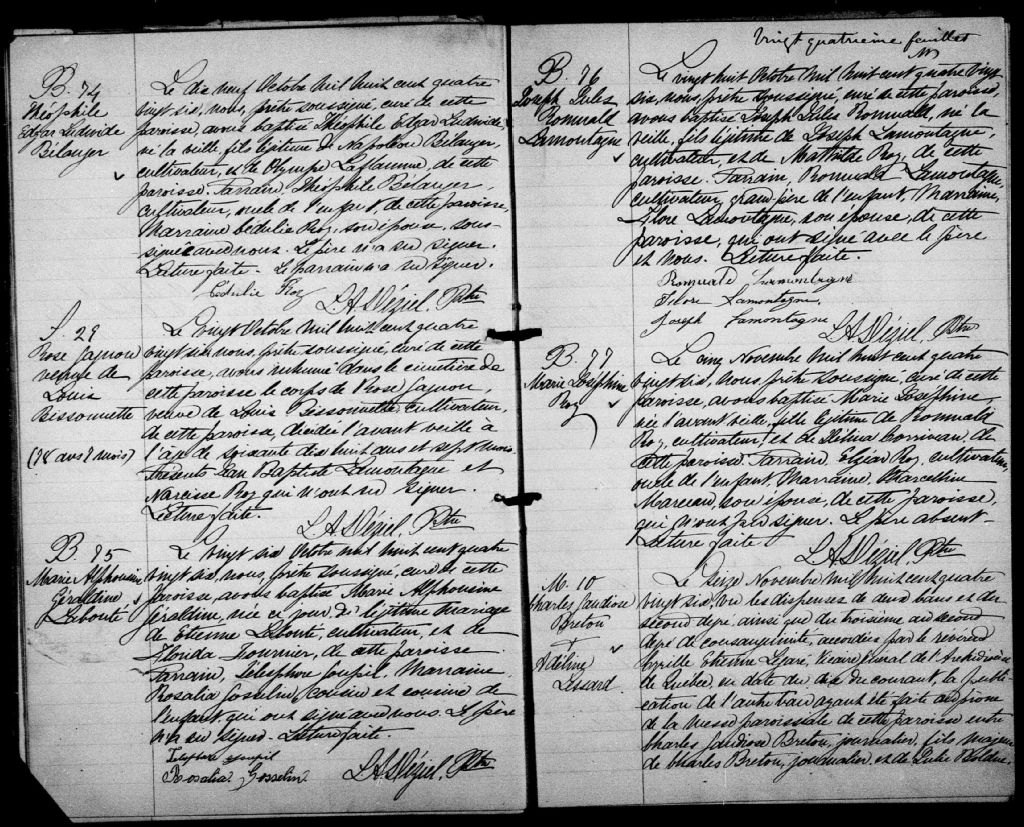 B. 74
Théophile
Edgar Ludovide
Bélanger
Le dix neuf Octobre Mil Huit cent quatre
vingt six, nous, prêtre soussigné, curé de cette
paroisse, avons baptisé Théophile Edgar Ludovide,
né la veille, fils légitime de Napoléon Bélanger,
cultivateur, et de Olympe Laflamme, de cette
paroisse. Parrain, Théophile Bélanger,
cultivateur, oncle de l'enfant, de cette paroisse,
Marraine Cédulie Roy, son épouse, sous-
signée avec nous. Le père n'a su signer.
Lecture faite. Le parrain n'a su signer.
Cédulie Roy
L A Déziel, Ptre
S. 29
Rose Gagnon
veuve de
Louis
Bissonnette
(78 ans 7 mois)
Le vingt Octobre Mil Huit cent quatre
vingt six, nous, prêtre soussigné, curé de cette
paroisse, avons inhumé dans le cimetière de
cette paroisse le corps de Rose Gagnon,
veuve de Louis Bissonnette, cultivateur,
de cette paroisse, décédée l'avant veille à
l'âge de soixante dix huit ans et sept mois.
Présents Jean Baptiste Lamontagne et
Narcisse Roy qui n'ont su signer.
Lecture faite.
L A Déziel, Ptre
B. 75
Marie Alphonsine
Géraldine
Lebouté
Le vingt six Octobre mil huit cent quatre
vingt six, nous, prêtre soussigné, curé de cette
paroisse, avons baptisé Marie Alphonsine
Géraldine, née ce jour, du légitime mariage
de Etienne Lebouté, cultivateur, et de
Florida Fournier, de cette paroisse.
Parrain, Télesphore Goupil, Marraine
Rosalie Gosselin, cousin et cousine de
l'enfant qui ont signé avec nous. Le père
n'a su signer. Lecture faite.
Telesphore Goupil
Rosalie Gosselin
L A Déziel, Ptre
Vingt quatrième feuillet
B. 76
Joseph Jules
Romuald
Lamontagne
Le vingt huit Octobre Mil Huit cent quatre vingt
six, nous, prêtre soussigné, curé de cette paroisse,
avons baptisé Joseph Jules Romuald, né la
veille, fils légitime de Joseph Lamontagne,
cultivateur, et de Mathilde Roy, de cette
paroisse. Parrain, Romuald Lamontagne,
cultivateur, grand père de l'enfant, Marraine,
Flore Lamontagne, son épouse, de cette
paroisse, qui ont signé avec le père
et nous. Lecture faite.
Romuald Lamontagne
Flore Lamontagne,
Joseph Lamontagne
L A Déziel, Ptre
B. 77
Marie Joséphine
Roy
Le cinq Novembre Mil huit cent quatre
vingt six, nous, prêtre soussigné, curé de cette
paroisse, avons baptisé Marie Joséphine,
née l'avant veille, fille légitime de Romuald
Roy, cultivateur, et de Délina Corriveau, de
cette paroisse. Parrain, Elzéar Roy, cultivateur,
oncle de l'enfant. Marraine, Marcelline
Marceau, son épouse, de cette paroisse,
qui n'ont pu signer. Le père absent.
Lecture faite.
L A Déziel, Ptre
M. 10
Charles Gaudiose
Breton
+
Adéline
Lessard
Le seize Novembre Mil huit cent quatre
vingt six, vu les dispenses de deux bans et du
second degré, ainsi que du troisième au second
degré de consanguinité, accordées par le révérend
Cyrille Etienne Legaré, Vicaire Général de l'Archidiocèse
de Québec, en date du dix du courant, la publi-
cation de l'autre ban ayant été faite au prône
de la Messe paroissiale de cette paroisse entre
Charles Gaudiose Breton, journalier, fils majeur
de Charles Breton, journalier, et de Julie Bolduc,